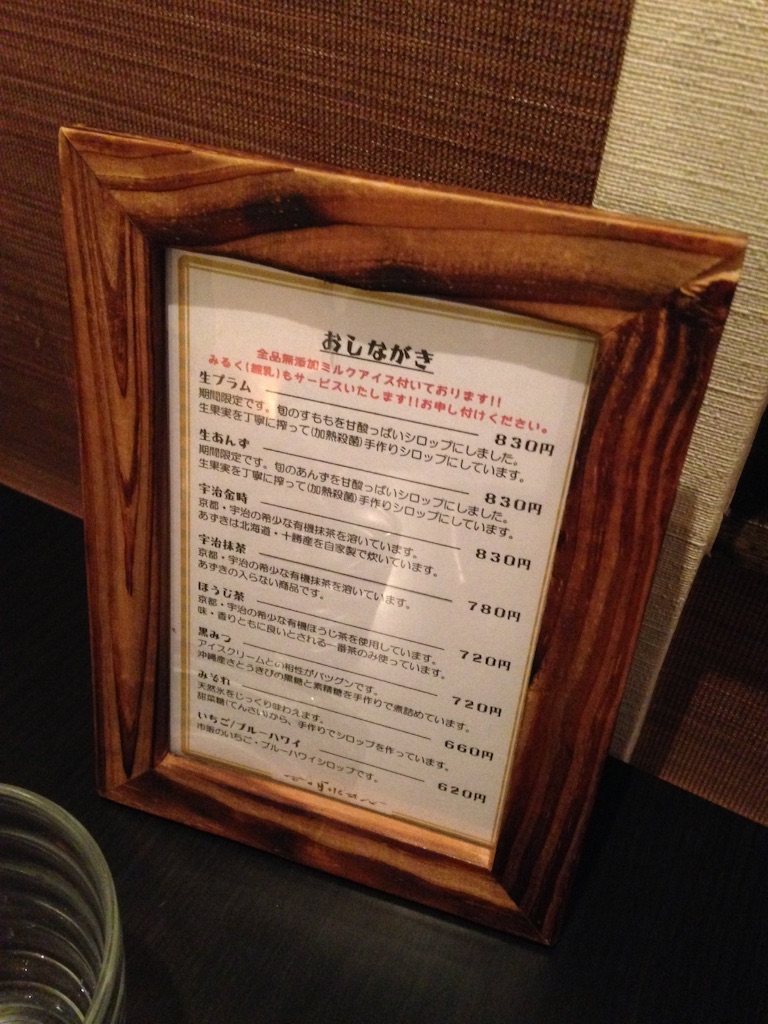 おしながき
全品無添加ミルクアイス付いております!!
みるく(練乳)もサービスいたします!!お申し付けください。
生プラム 830円
期間限定です。旬のすももを甘酸っぱいシロップにしました。
生果実を丁寧に搾って(加熱殺菌)手作りシロップにしています。
生あんず 830円
期間限定です。旬のあんずを甘酸っぱいシロップにしました。
生果実を丁寧に搾って(加熱殺菌)手作りシロップにしています。
宇治金時 830円
京都・宇治の希少な有機抹茶を溶いています。
あずきは北海道・十勝産を自家製で炊いています。
宇治抹茶 780円
京都・宇治の希少な有機抹茶を溶いています。
あずきの入らない商品です。
ほうじ茶 720円
京都・宇治の希少な有機ほうじ茶を使用しています。
味・香りともに良いとされる一番茶のみ使っています。
黒みつ 720円
アイスクリームとの相性がバツグンです。
沖縄産さとうきびの黒糖と素精糖を手作りで煮詰めています。
みぞれ 660円
天然氷をじっくり味わえます。
甜菜糖(てんさい)から、手作りでシロップを作っています。
いちご/ブルーハワイ 620円
市販のいちご・ブルーハワイシロップです。